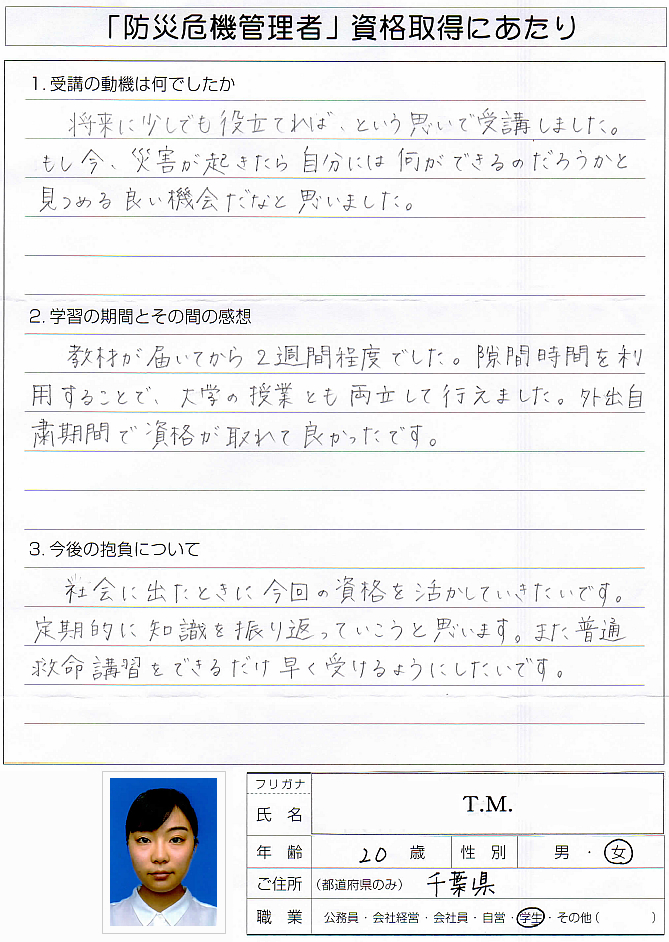 「防災危機管理者」資格取得にあたり
1.受講の動機は何でしたか
将来に少しでも役立てれば、という思いで受講しました。
もし今、災害が起きたら自分には何ができるのだろうかと
見つめる良い機会だなと思いました。
2.学習の期間とその間の感想
教材が届いてから2週間程度でした。隙間時間を利
用することで、大学の授業とも両立して行えました。外出自
粛期間で資格が取れて良かったです。
3.今後の抱負について
社会に出たときに今回の資格を活かしていきたいです。
定期的に知識を振り返っていこうと思います。また普通
救命講習をできるだけ早く受けるようにしたいです。
フリガナ
氏 名 T.M.
年 齢 20 歳 性 別 男 ・ 女
ご住所 (都道府県のみ) 千葉県
職 業 公務員・会社経営・会社員・自営・学生・その他( )